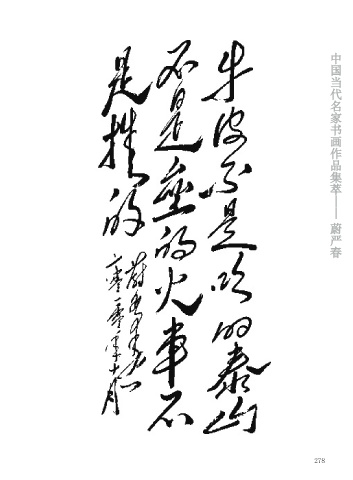 牛皮不是吹的泰山
不是垒的火车不
是推的
中国当代名家书画作品集萃——蔚严春
278